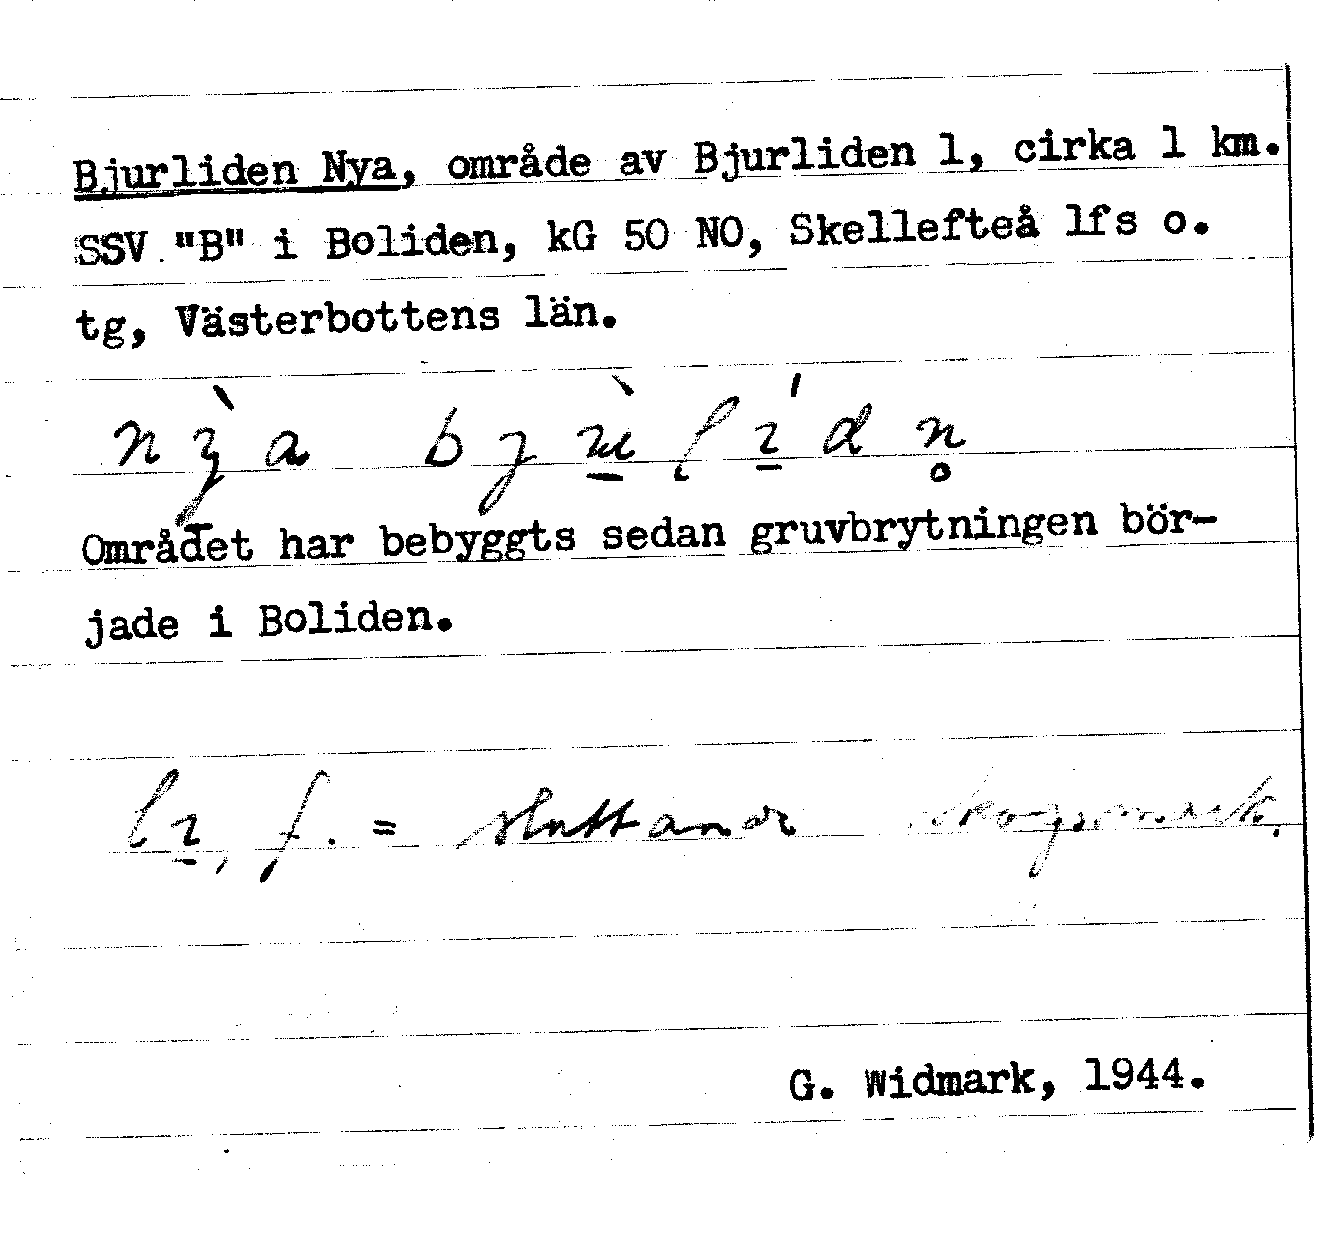 Bjurliden Nya, område av Bjurliden 1, cirka 1 km.
SSV "B" i Boliden, kG 50 NO, Skellefteå lfs o.
tg, Västerbottens län.
Området har bebyggts sedan gruvbrytningen bör-
jade i Boliden.
f. = sluttande skogsmark.
G. Widmark, 1944.